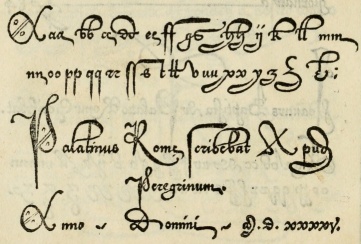 Aaa bb cc dd ee ff gg hh ij k ll mm
nn oo pp qq rr ſſs t ll v uu xx y z & :
Palatinus Rome scribebat Apud
Peregrinum.
Anno ~ Domini ~ M. D. xxxxv.